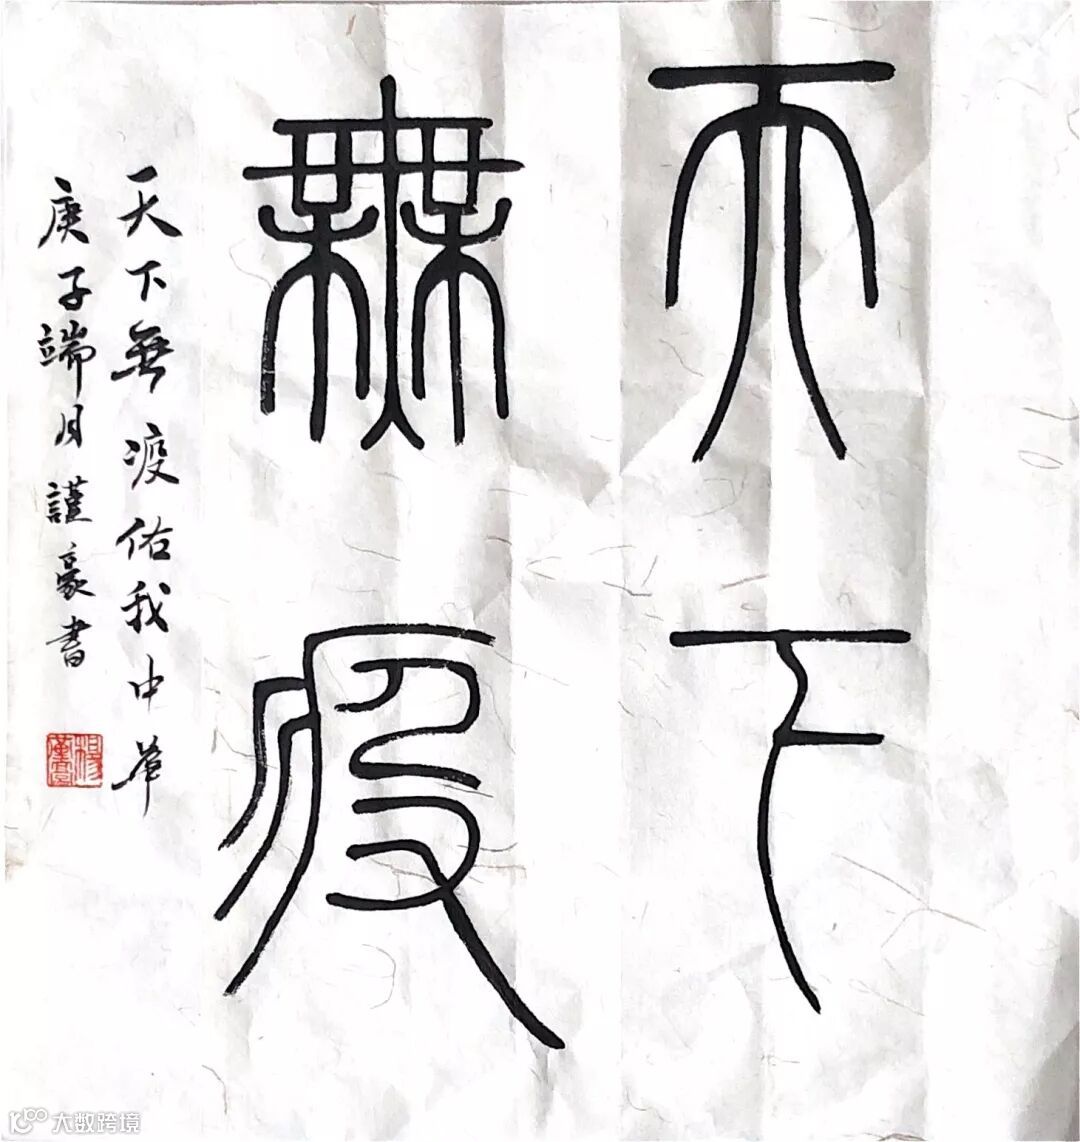 天下
無疫
天下無疫佑我中華
庚子端月謹豪書
大数跨境